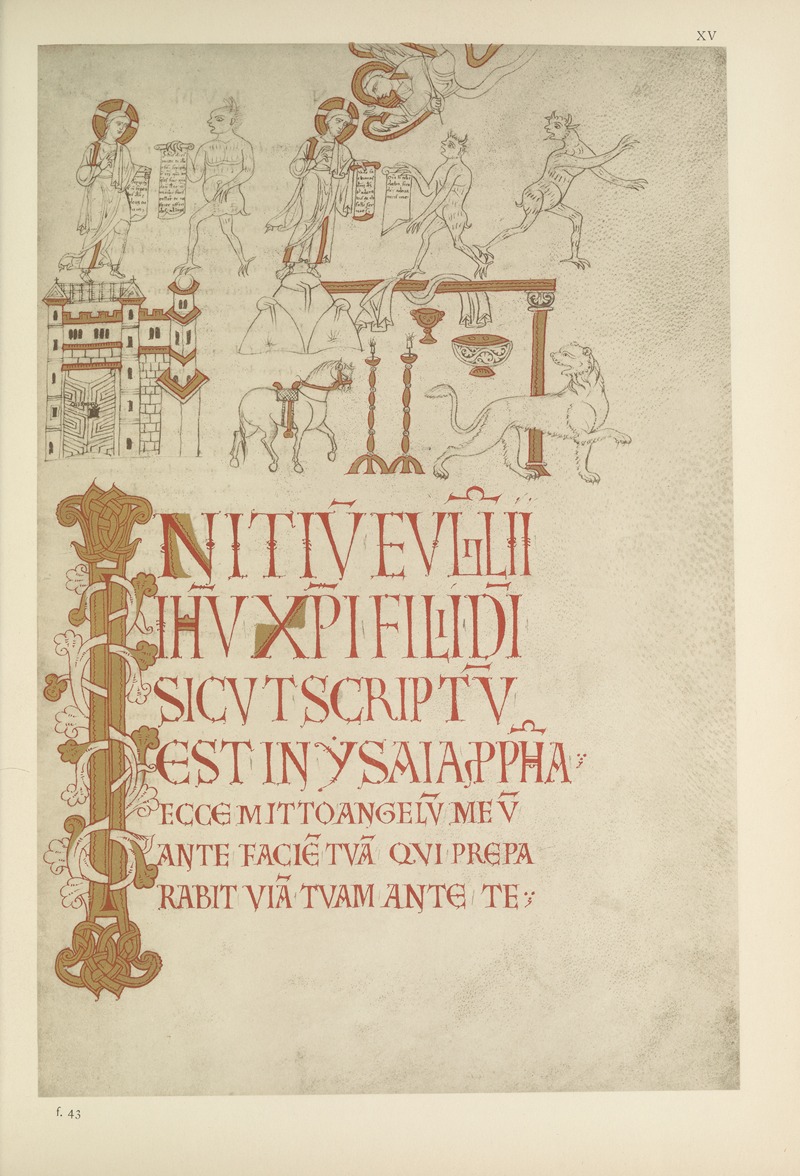 XV
INITIŪ EVGLII
IH̄V XP̄I FILII DĪ
SICVT SCRIPTŪ
EST IN YSAIA PPHA
ECCE MITTO ANGELŪ MEŪ
ANTE FACIĒ TVĀ QVI PREPA
RABIT VIĀ TVAM ANTE TE
f. 43